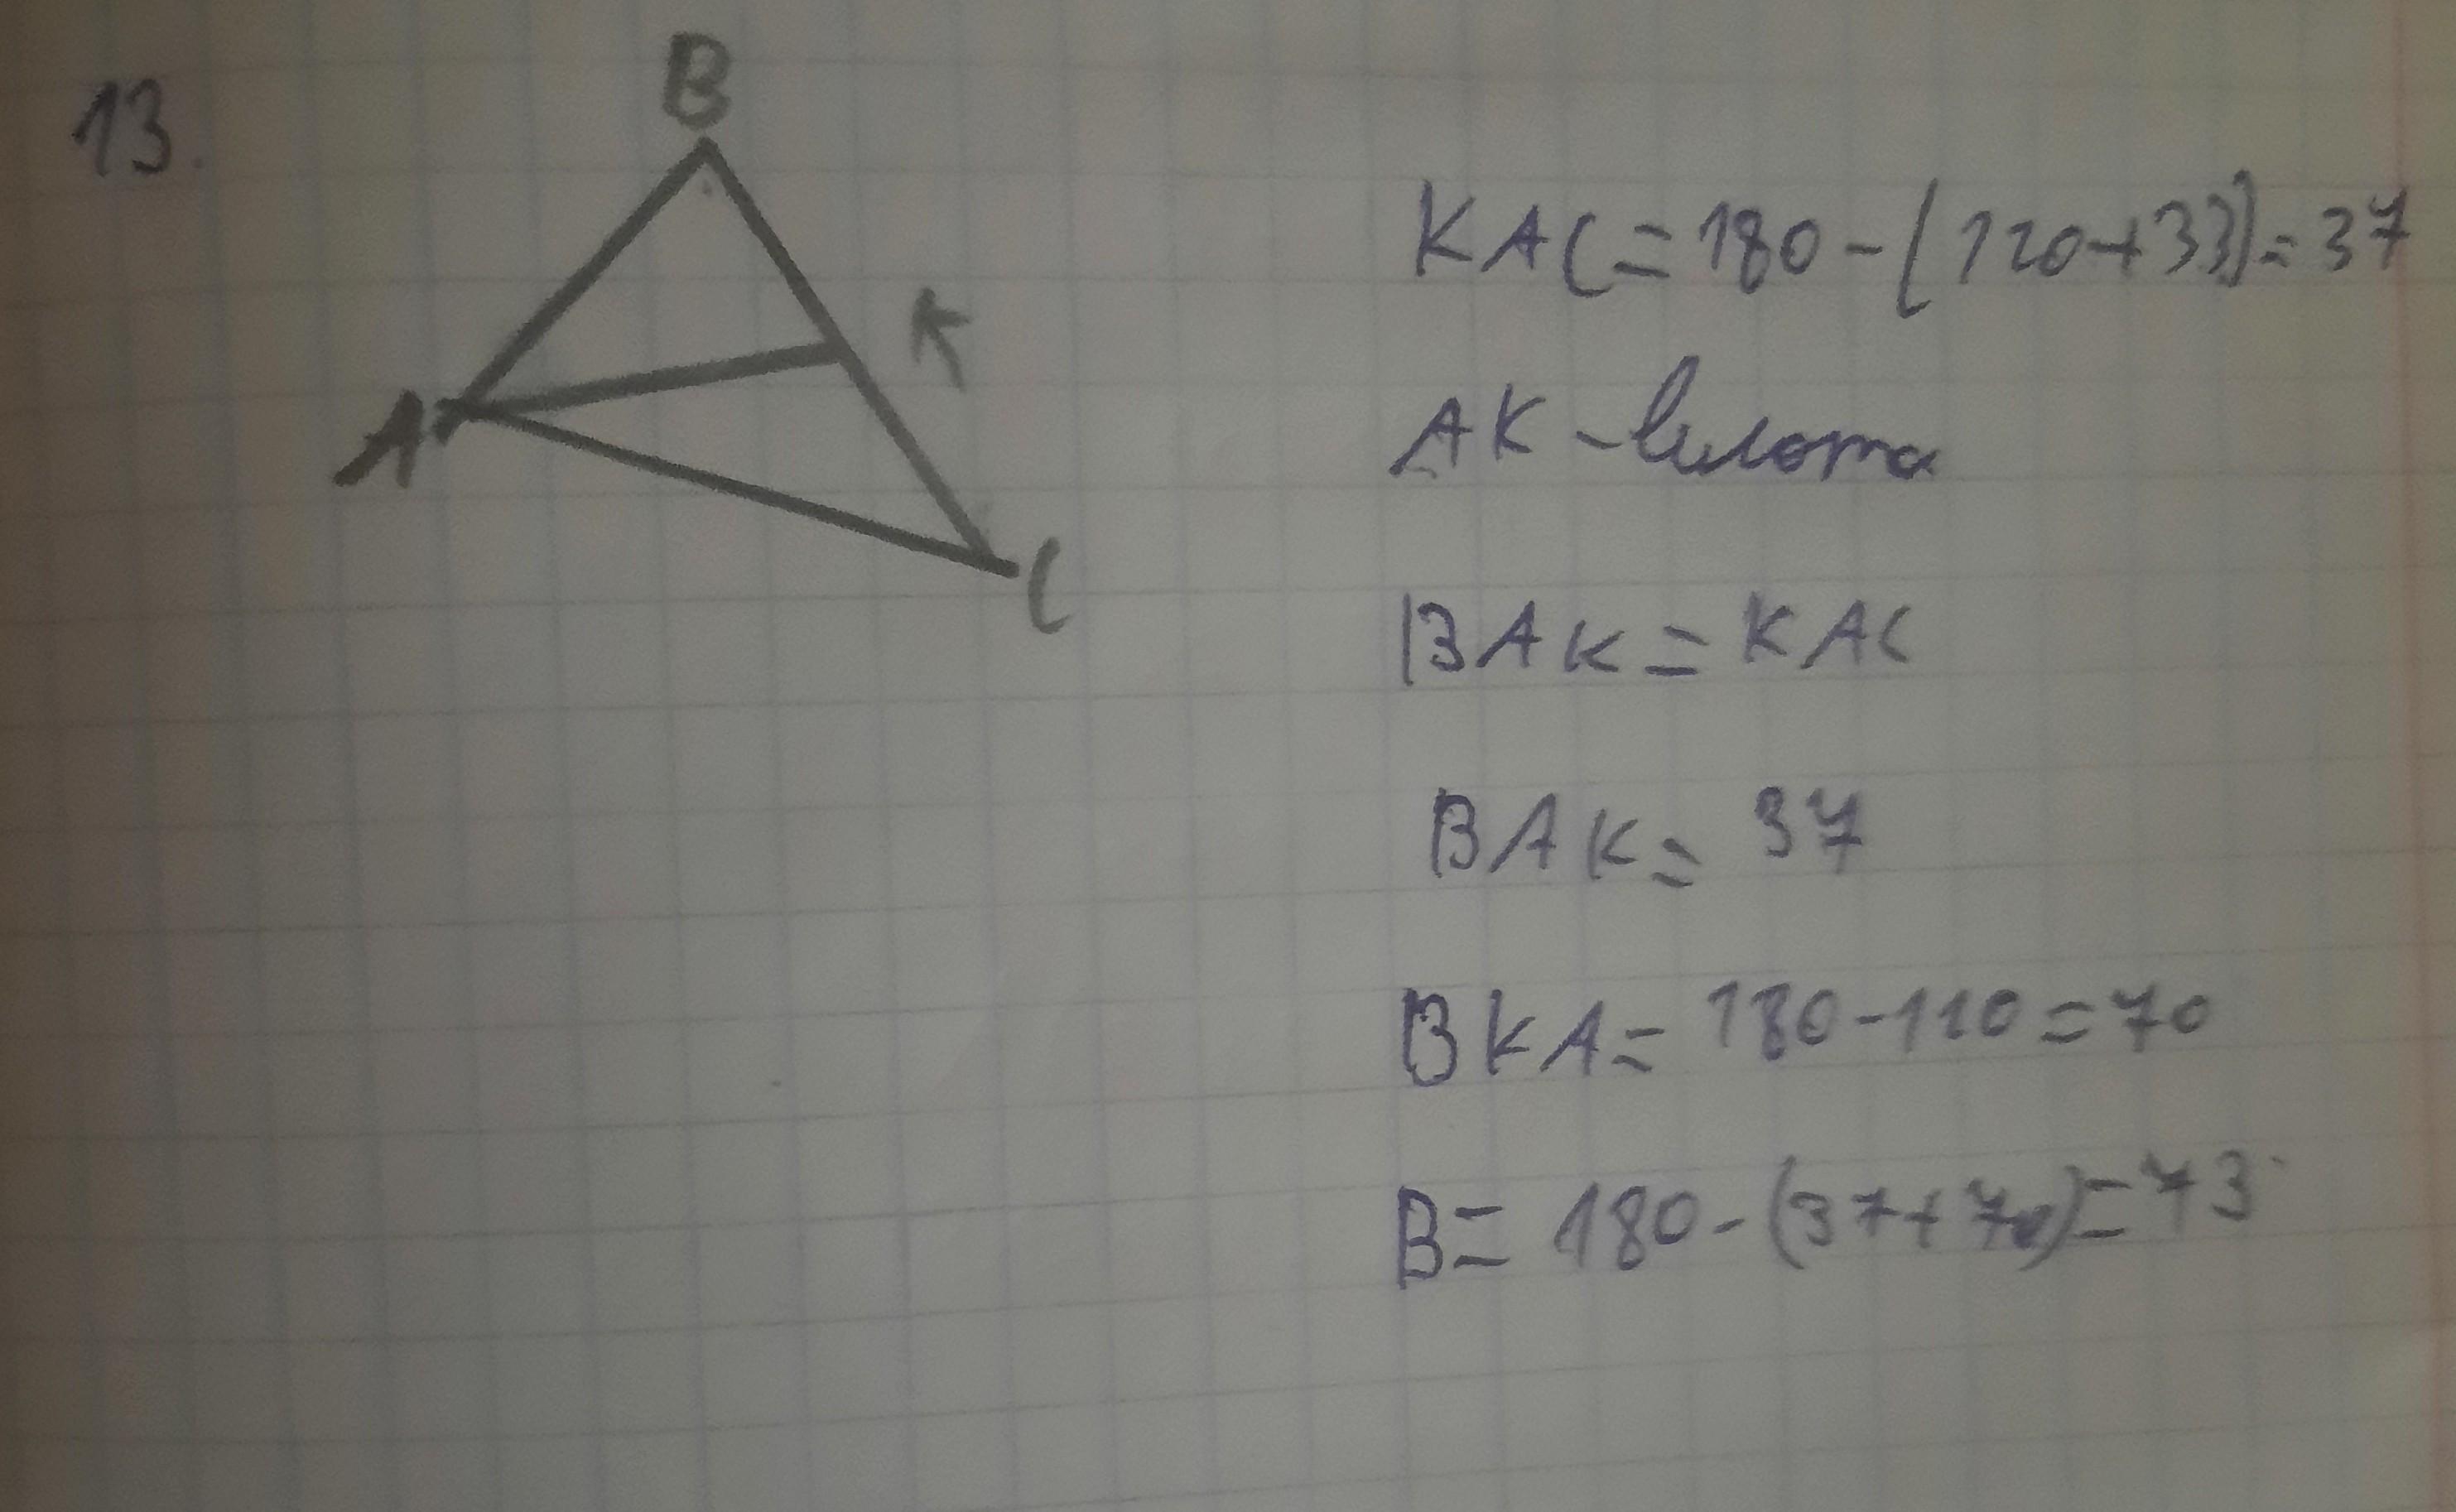 13.
B
K
A
C
KAC = 180 - (110 + 33) = 37
AK - висота
BAK = KAC
BAK = 37
BKA = 180 - 110 = 70
B = 180 - (37 + 70) = 73